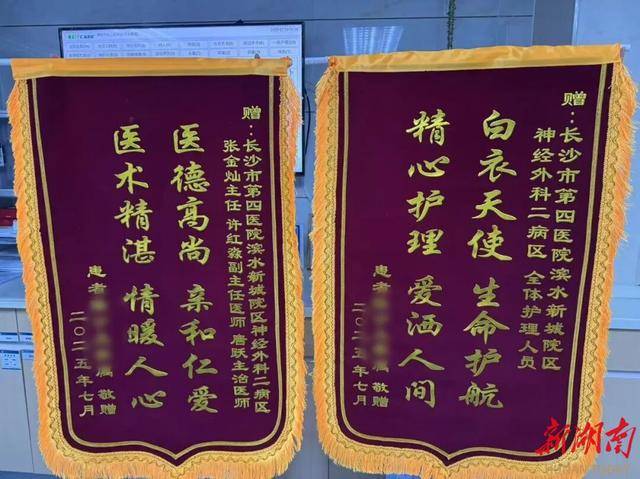 赠：长沙市第四医院滨水新城院区神经外科二病区
张金灿主任 许红淼副主任医师 唐跃主治医师
医德高尚 亲和仁爱
医术精湛 情暖人心
患者 属 敬赠
二〇二五年七月
赠：长沙市第四医院滨水新城院区
神经外科二病区 全体护理人员
白衣天使 生命护航
精心护理 爱洒人间
患者 属 敬赠
二〇二五年七月
新湖南